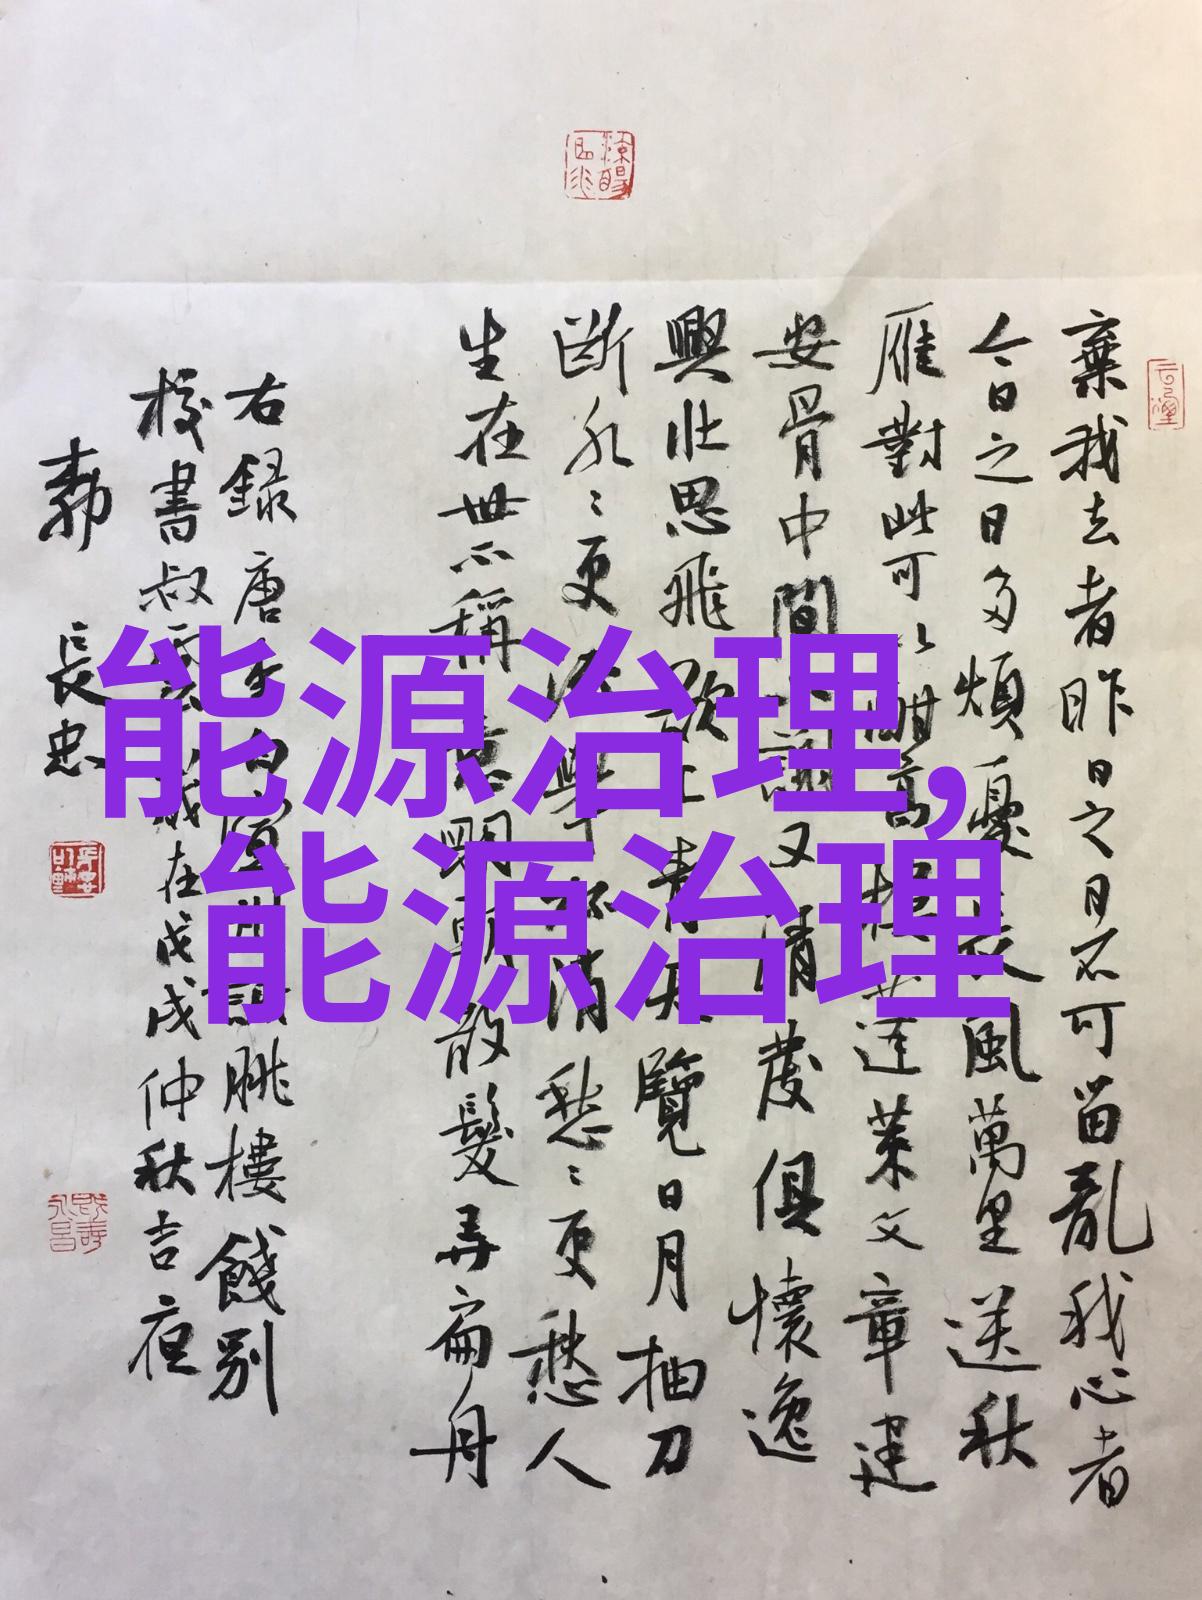 能源治理,
能源治理
棄我去者昨日之日不可留亂我心者
今日之日多煩憂長風萬里送秋
雁對此可以酣高樓蓬萊文章建
安骨中間小謝又清發俱懷逸
興壯思飛欲上青天覽日月抽刀
斷水〻更流舉杯消愁〻更愁人
生在世不稱意明朝散髮弄扁舟
右録唐李白宣州謝朓樓餞別
校書叔雲歲在戊戌仲秋吉夜
郭長忠